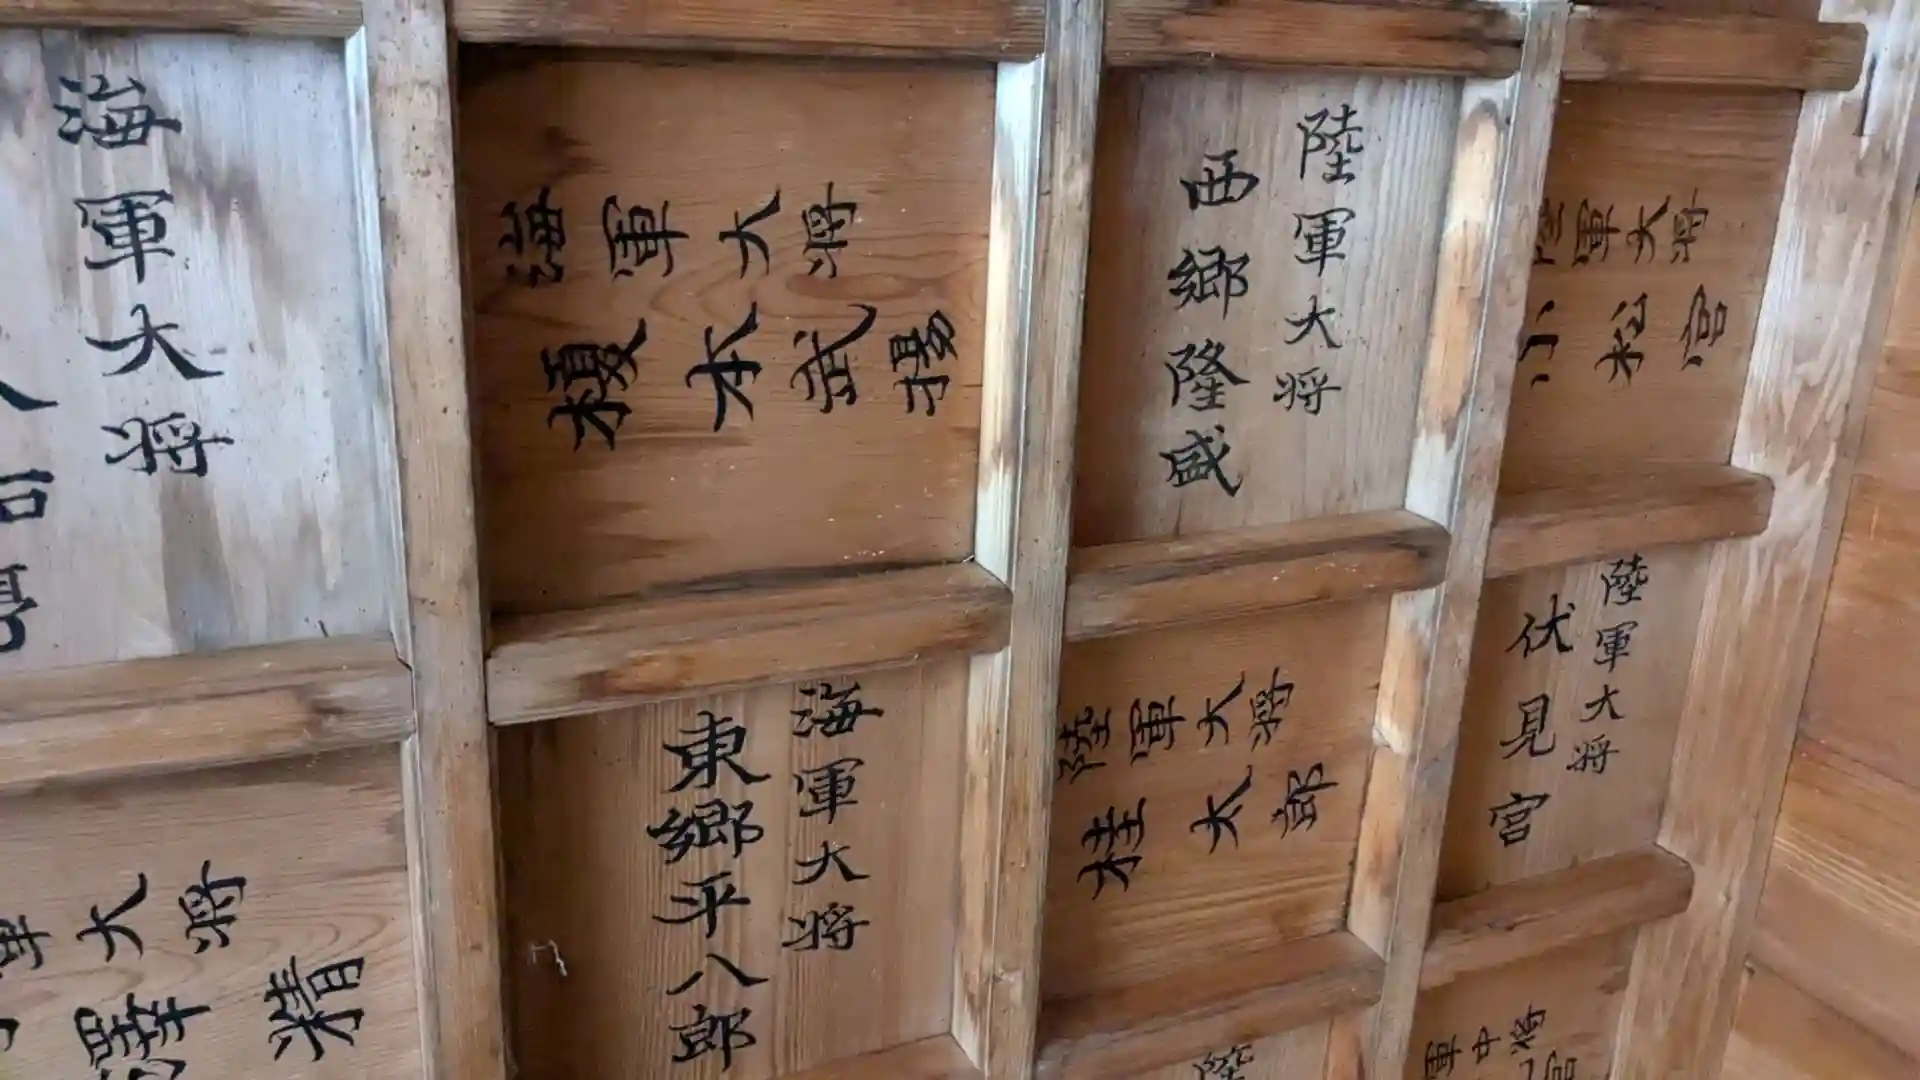 海軍大将
海軍大将
榎本武揚
陸軍大将
西郷隆盛
陸軍大将
小松宮
軍大将
澤精
海軍大将
東郷平八郎
陸軍大将
桂太郎
陸軍大将
伏見宮
陸
軍中将
宮